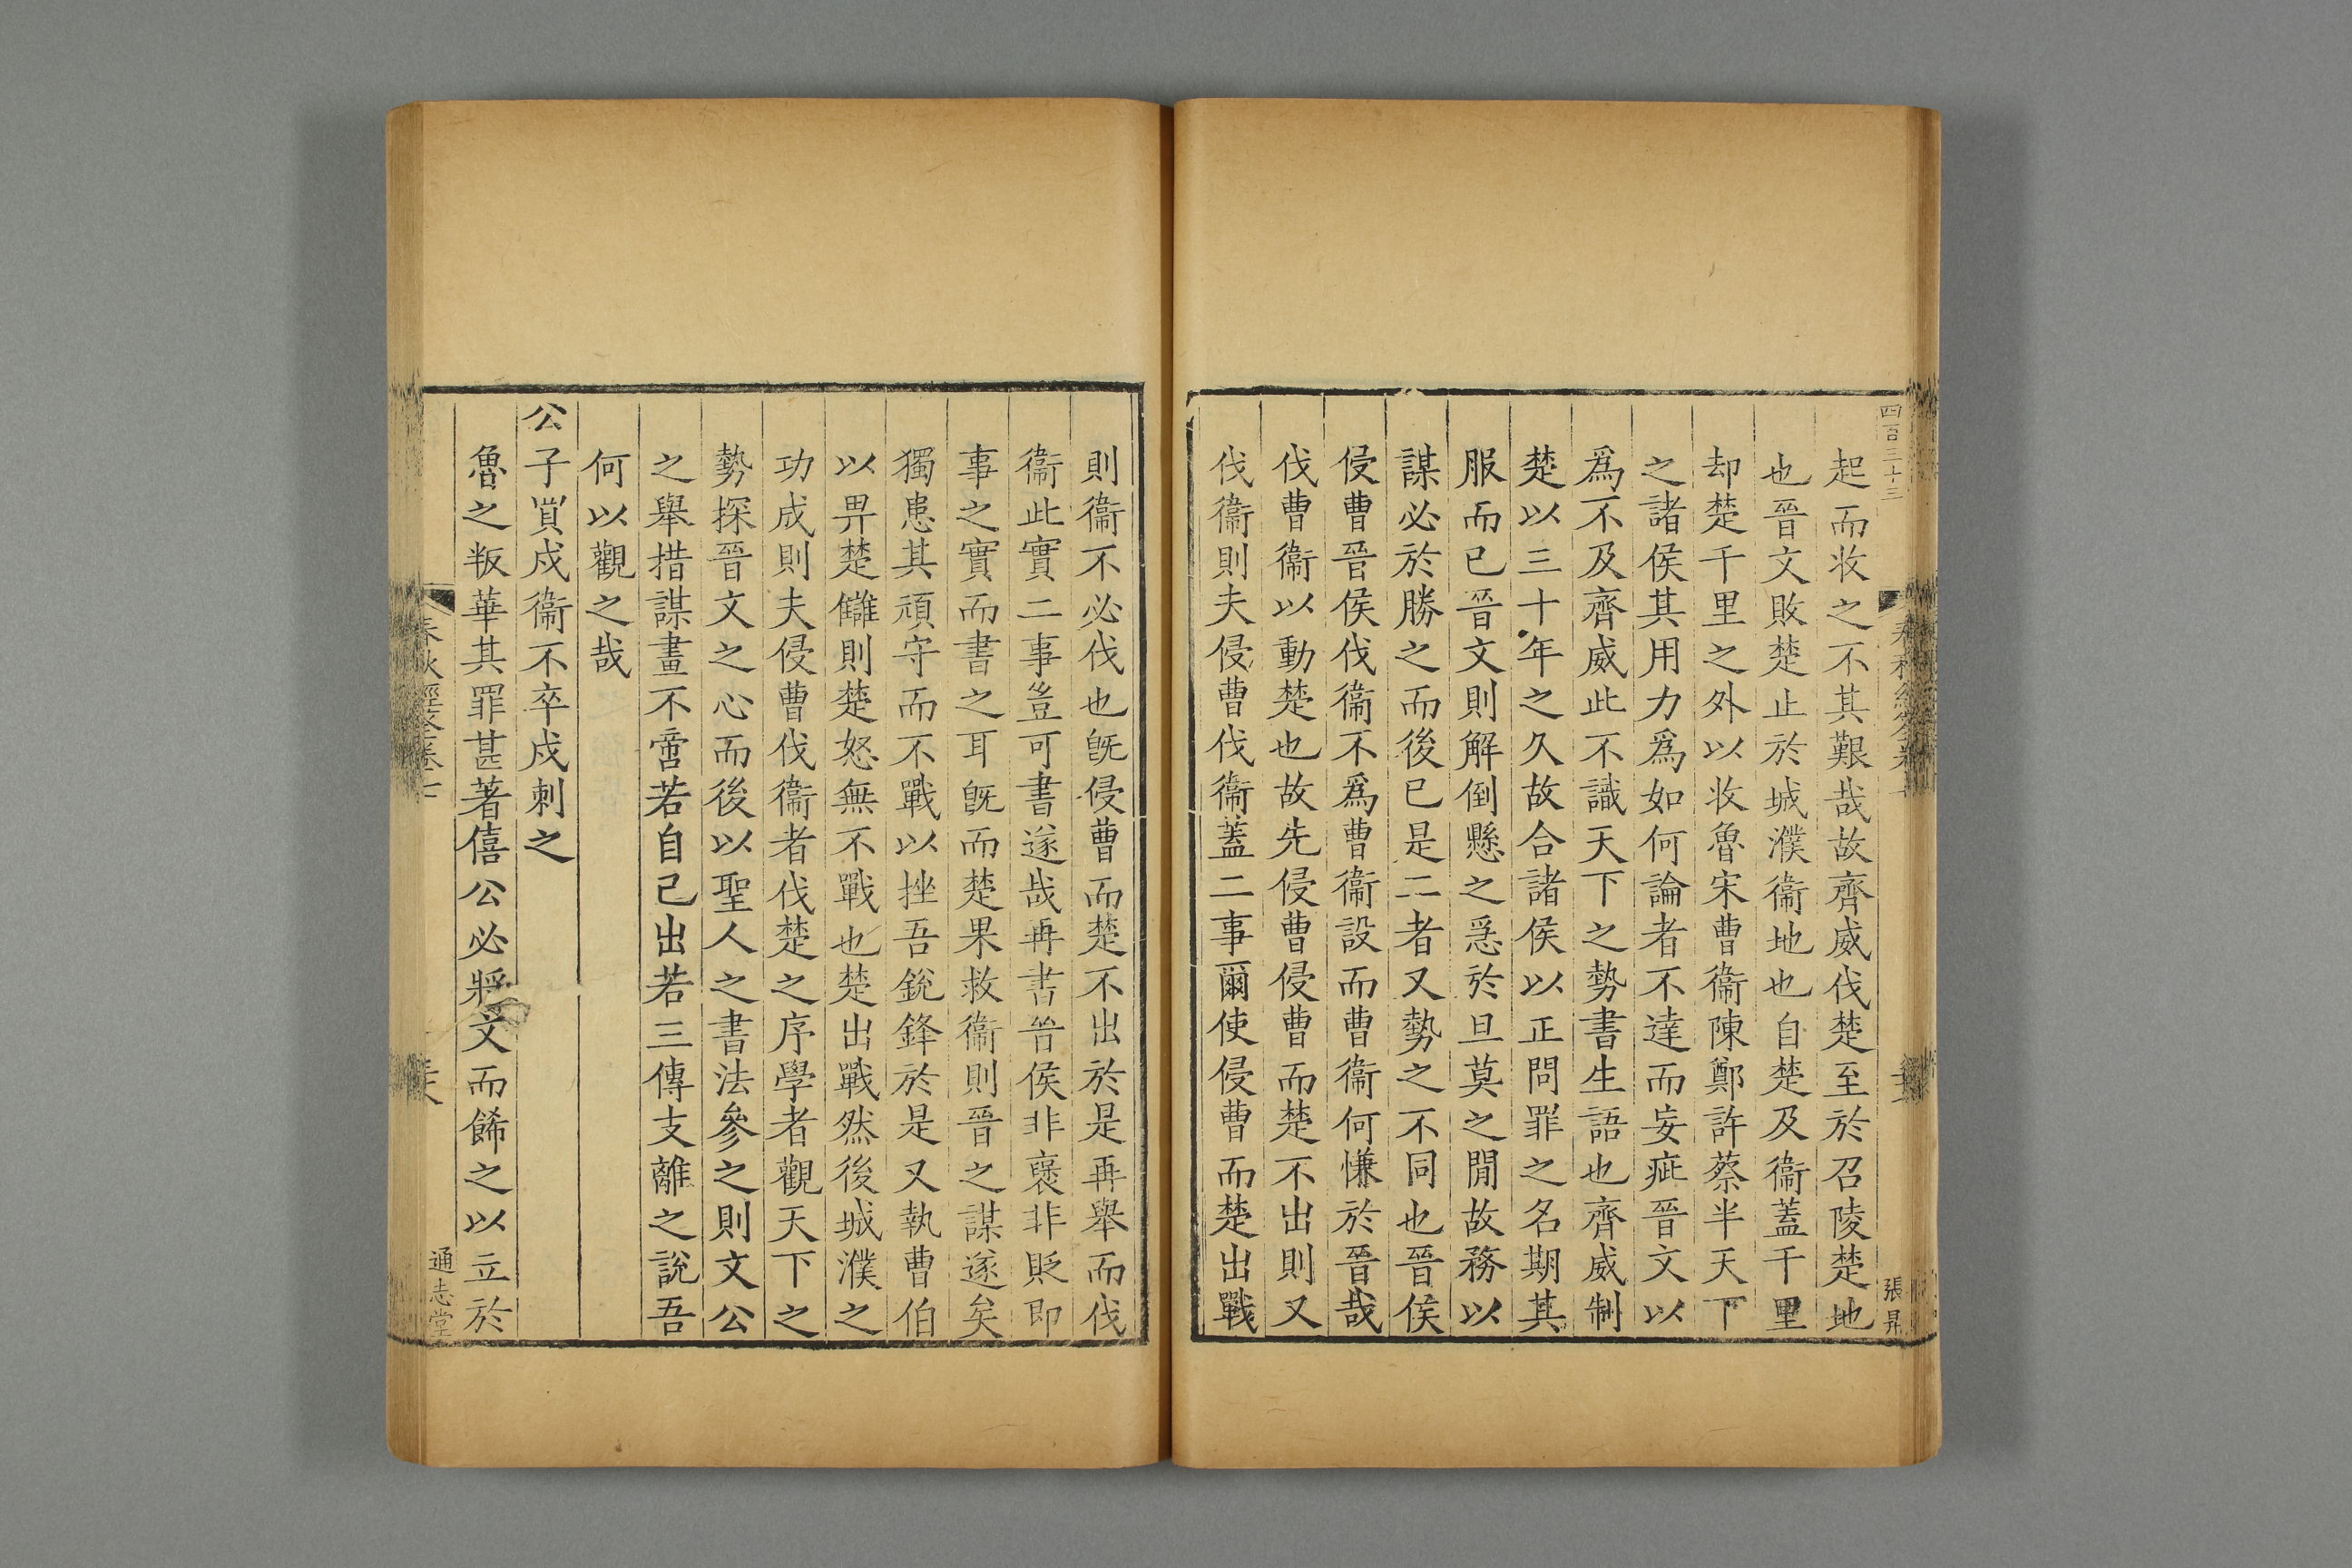 四百三十三
張昇
起而收之不其艱哉故齊威伐楚至於召陵楚地
也晉文敗楚止於城濮衞地也自楚及衞蓋千里
却楚千里之外以收魯宋曹衞陳鄭許蔡半天下
之諸侯其用力爲如何論者不達而妄疵晉文以
爲不及齊威此不識天下之勢書生語也齊威制
楚以三十年之久故合諸侯以正問罪之名期其
服而已晉文則解倒懸之急於旦莫之閒故務以
謀必於勝之而後已是二者又勢之不同也晉侯
侵曹晉侯伐衞不爲曹衞設而曹衞何慊於晉哉
伐曹衞以動楚也故先侵曹侵曹而楚不出則又
伐衞則夫侵曹伐衞蓋二事爾使侵曹而楚出戰
則衞不必伐也旣侵曹而楚不出於是再舉而伐
衞此實二事豈可書遂哉再書晉侯非褒非貶卽
事之實而書之耳旣而楚果救衞則晉之謀遂矣
獨患其頑守而不戰以挫吾銳鋒於是又執曹伯
以畀楚讎則楚怒無不戰也楚出戰然後城濮之
功成則夫侵曹伐衞者伐楚之序學者觀天下之
勢探晉文之心而後以聖人之書法參之則文公
之舉措謀畫不啻若自己出若三傳支離之說吾
何以觀之哉
公子買戍衞不卒戍刺之
魯之叛華其罪甚著僖公必將文而餙之以立於
春秋經筌卷七
通志堂